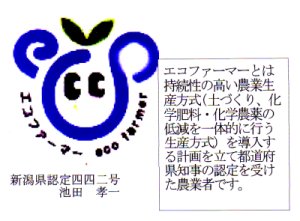 エコファーマー eco farmer
新潟県認定四四二号
池田 孝一
エコファーマーとは
持続性の高い農業生
産方式(土づくり、化
学肥料・化学農薬の
低減を一体的に行う
生産方式) を導入す
る計画を立て都道府
県知事の認定を受け
た農業者です。